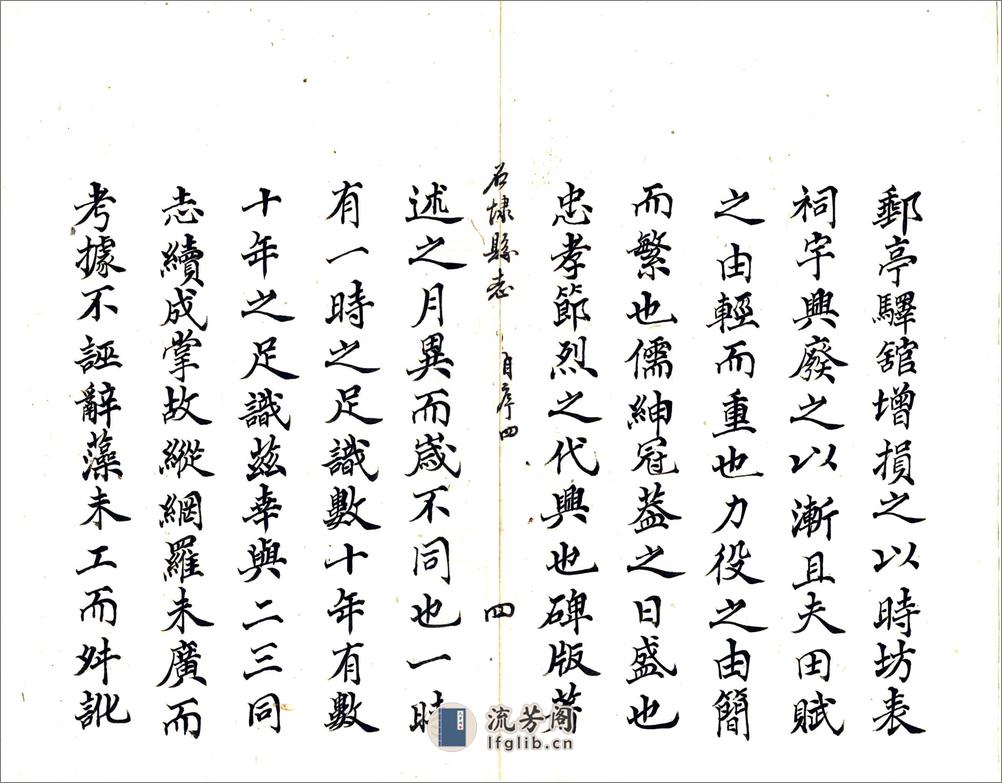 郵亭驛舘增損之以時坊表
祠宇興廢之以漸且夫田賦
之由輕而重也力役之由簡
而繁也儒紳冠葢之日盛也
忠孝節烈之代興也碑版著
石埭縣志 自序四 四
述之月異而歲不同也一時
有一時之足識數十年有數
十年之足識茲幸與二三同
志續成掌故縱網羅未廣而
考據不誣辭藻未工而舛訛
流芳阁
lfglib.cn